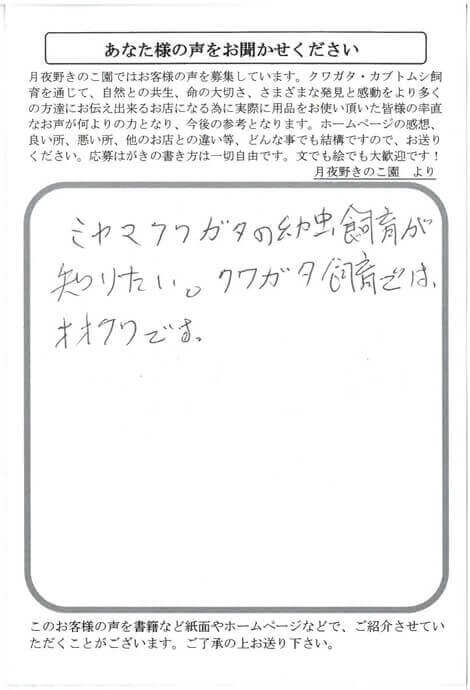 あなた様の声をお聞かせください
月夜野きのこ園ではお客様の声を募集しています。クワガタ・カブトムシ飼
育を通じて、自然との共生、命の大切さ、さまざまな発見と感動をより多く
の方達にお伝え出来るお店になる為に実際に用品をお使い頂いた皆様の率直
なお声が何よりの力となり、今後の参考となります。ホームページの感想、
良い所、悪い所、他のお店との違い等、どんな事でも結構ですので、お送り
ください。応募はがきの書き方は一切自由です。文でも絵でも大歓迎です！
月夜野きのこ園 より
ミヤマクワガタの幼虫飼育が
知りたい。クワガタ飼育では、
オオクワです。
このお客様の声を書籍など紙面やホームページなどで、ご紹介させてい
ただくことがございます。ご了承の上お送り下さい。